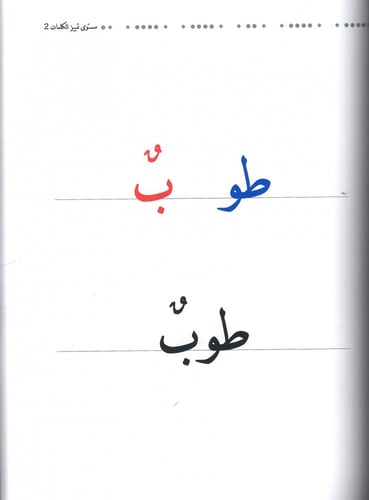 مستوى تمييز الكلمات 2
طو بٌ
طوبٌ